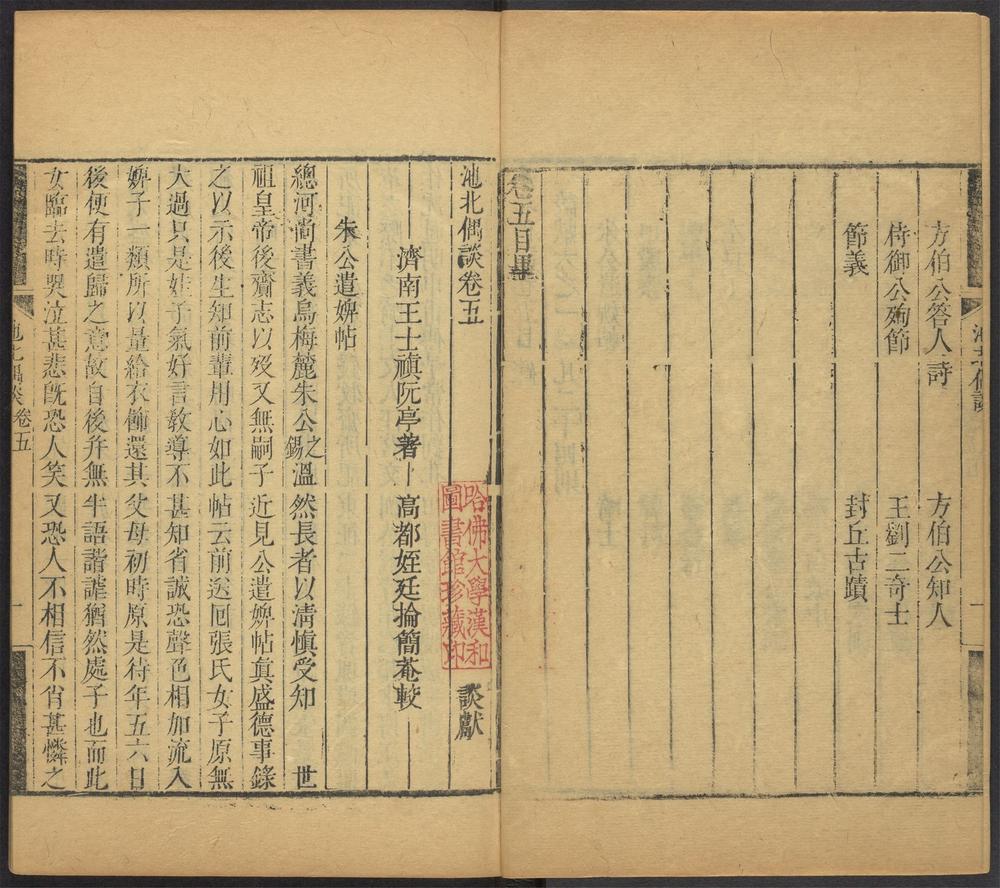 方伯公答人詩　方伯公知人
侍御公殉節　王劉二奇士
節義　封丘古蹟
卷五目畢
池北偶談卷五　談獻
哈佛大學漢和
圖書館珍藏印
濟南王士禛阮亭著　高都姪廷掄簡菴較
朱公遺婢帖
總河尚書義烏梅麓朱公之錫溫然長者以淸愼受知　世
祖皇帝後齎志以歿又無嗣子近見公遣婢帖眞盛德事錄
之以示後生知前輩用心如此帖云前送回張氏女子原無
大過只是娃子氣好言敎導不甚知省誠恐聲色相加流入
婢子一類所以量給衣飾還其父母初時原是待年五六日
後便有遣歸之意故自後幷無半語諧謔猶然處子也而此
女臨去時哭泣甚悲旣恐人笑又恐人不相信不肖甚憐之
池北偶談　卷五　一